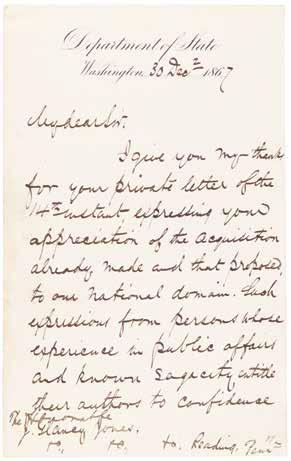 Department of State
Washington, 30 Decr 1867
My dear Sir.
I give you my thanks
for your private letter of the
14th instant, expressing your
appreciation of the acquisition
already, made and that proposed,
to our national domain. Such
expressions from persons whose
experience in public affairs
and known sagacity entitle
their authors to confidence
The Honorable
J. Glancy Jones.
&c. &c. &c. Reading, Penna